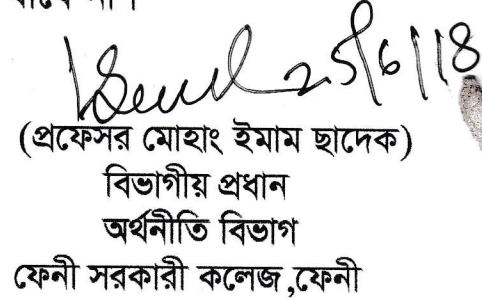 25/6/18
(প্রফেসর মোহাং ইমাম ছাদেক)
বিভাগীয় প্রধান
অর্থনীতি বিভাগ
ফেনী সরকারী কলেজ,ফেনী